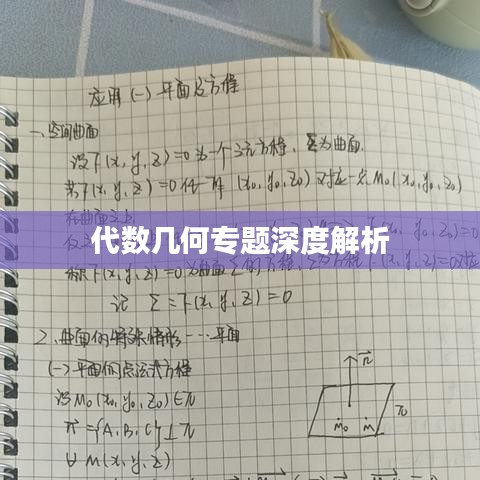 应用(一)平面及方程
一、空间曲面
设F(x,y,z)=0为一个三元方程, Σ为曲面.
若F(x,y,z)=0任一解(x₀,y₀,z₀)对应一点M₀(x₀,y₀,z₀)
在曲面Σ上
代数几何专题深度解析
称F(x,y,z)=0为曲面Σ的方程, Σ为方程F(x,y,z)=0
记 Σ:F(x,y,z)=0
2、曲面的特殊情形……平面
(一)平面的点法式方程
设M₀(x₀,y₀,z₀)∈π
n={A,B,C}⊥π
∀M(x,y,z)
n
π
M₀ M